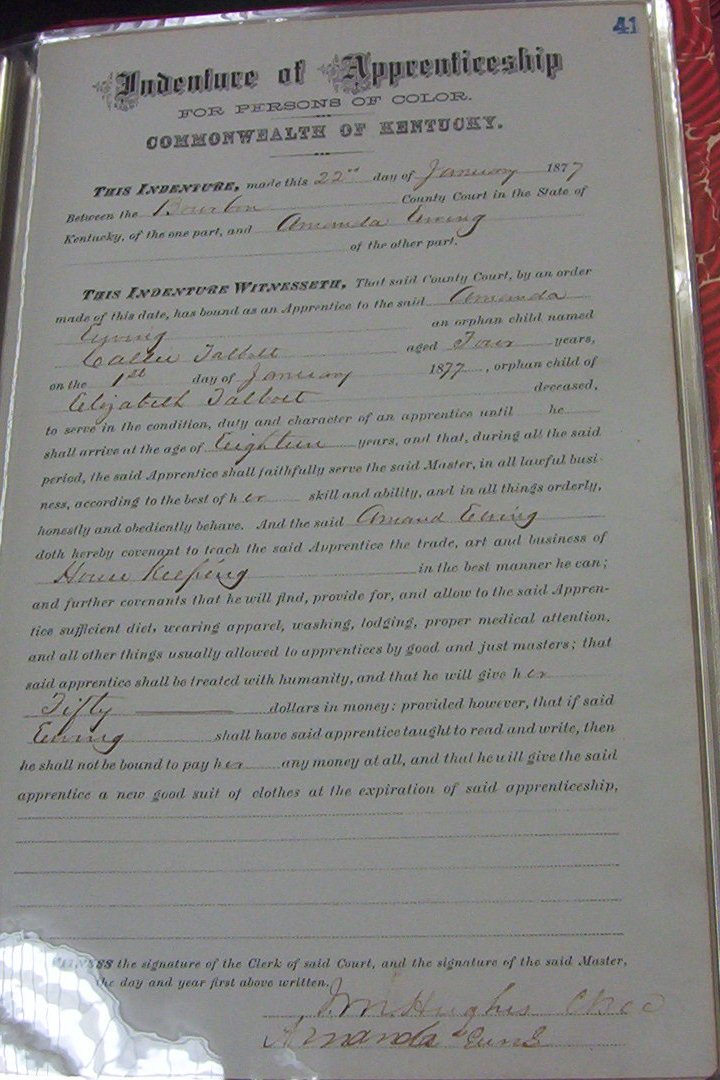 41
Indenture of Apprenticeship
FOR PERSONS OF COLOR.
COMMONWEALTH OF KENTUCKY.
THIS INDENTURE, made this 22nd day of January 1877
Between the Bourbon County Court in the State of
Kentucky, of the one part, and Amanda Ewing
of the other part.
THIS INDENTURE WITNESSETH, That said County Court, by an order
made of this date, has bound as an Apprentice to the said Amanda
Ewing an orphan child named
Callie Talbott aged Four years,
on the 1st day of January 1877, orphan child of
Elizabeth Talbott deceased,
to serve in the condition, duty and character of an apprentice until he
shall arrive at the age of Eighteen years, and that, during all the said
period, the said Apprentice shall faithfully serve the said Master, in all lawful busi-
ness, according to the best of her skill and ability, and in all things orderly,
honestly and obediently behave. And the said Amand Ewing
doth hereby covenant to teach the said Apprentice the trade, art and business of
House Keeping in the best manner he can;
and further covenants that he will find, provide for, and allow to the said Appren-
tice sufficient diet, wearing apparel, washing, lodging, proper medical attention,
and all other things usually allowed to apprentices by good and just masters; that
said apprentice shall be treated with humanity, and that he will give her
Fifty dollars in money: provided however, that if said
Ewing shall have said apprentice taught to read and write, then
he shall not be bound to pay her any money at all, and that he will give the said
apprentice a new good suit of clothes at the expiration of said apprenticeship,
WITNESS the signature of the Clerk of said Court, and the signature of the said Master,
the day and year first above written.
Hughes
Amanda